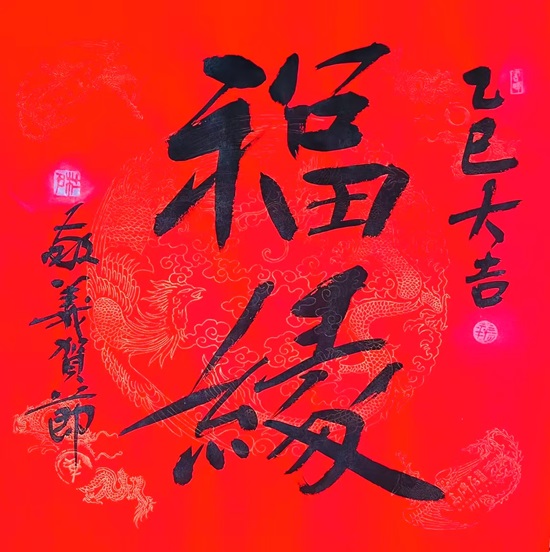 乙巳大吉
福緣
敬義賀節